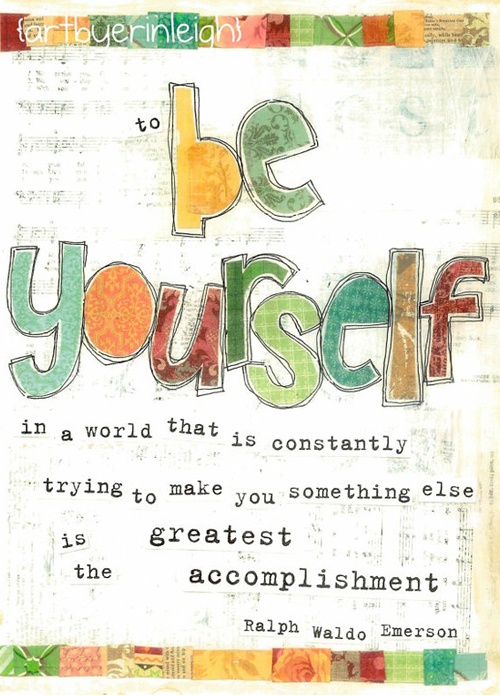 {artbyerinleigh}
to be
yourself
in a world that is constantly
trying to make you something else
is greatest
the accomplishment
Ralph Waldo Emerson